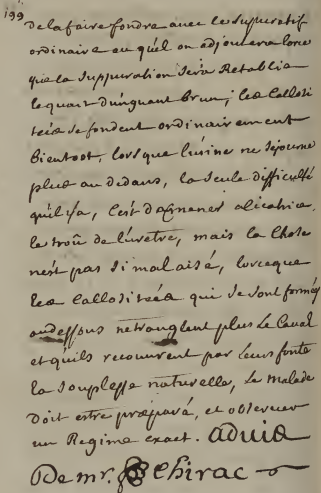 199
de la faire fondre avec le suppuratif
ordinaire au quel on adjoutera lors
que la suppuration sera Retablie
le quart d'unguant brun; les Callosi
tées se fondent ordinairement
bientost, lorsque l'urine ne séjourne
plus au dedans, la seule difficulté
qu'il y a, c'est d'amener a licatrice
le troû de l'uretre, mais la Chose
n'est pas si mal aisé, lorceque
les Callositées qui se sont formées
au dessous n'etranglent plus Le Canal
et qu'ils recouvrent par leurs fonte
la souplesse naturelle, Le malade
doit estre præparé, et observer
un Regime exact. aduis
De mr. Chirac